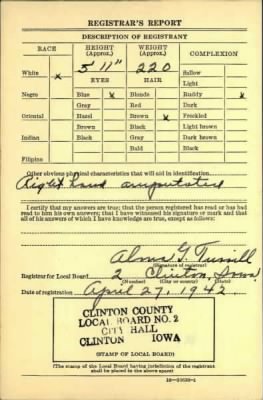 REGISTRAR'S REPORT
DESCRIPTION OF REGISTRANT
RACE HEIGHT (Approx.) WEIGHT (Approx.) COMPLEXION
White x 5' 11" 220 Sallow
EYES HAIR Light
Negro Blue x Blonde Ruddy x
Gray Red Dark
Oriental Hazel Brown x Freckled
Brown Black Light brown
Indian Black Gray Dark brown
Bald Black
Filipino
Other obvious physical characteristics that will aid in identification
Right hand amputated
I certify that my answers are true; that the person registered has read or has had
read to him his own answers; that I have witnessed his signature or mark and that
all of his answers of which I have knowledge are true, except as follows:
Alma G.
(Signature of registrar)
Registrar for Local Board 2 Clinton, Iowa
(Number) (City or county) (State)
Date of registration April 27, 1942
CLINTON COUNTY
LOCAL BOARD NO. 2
CITY HALL
CLINTON IOWA
(STAMP OF LOCAL BOARD)
(The stamp of the Local Board having jurisdiction of the registrant
shall be placed in the above space)